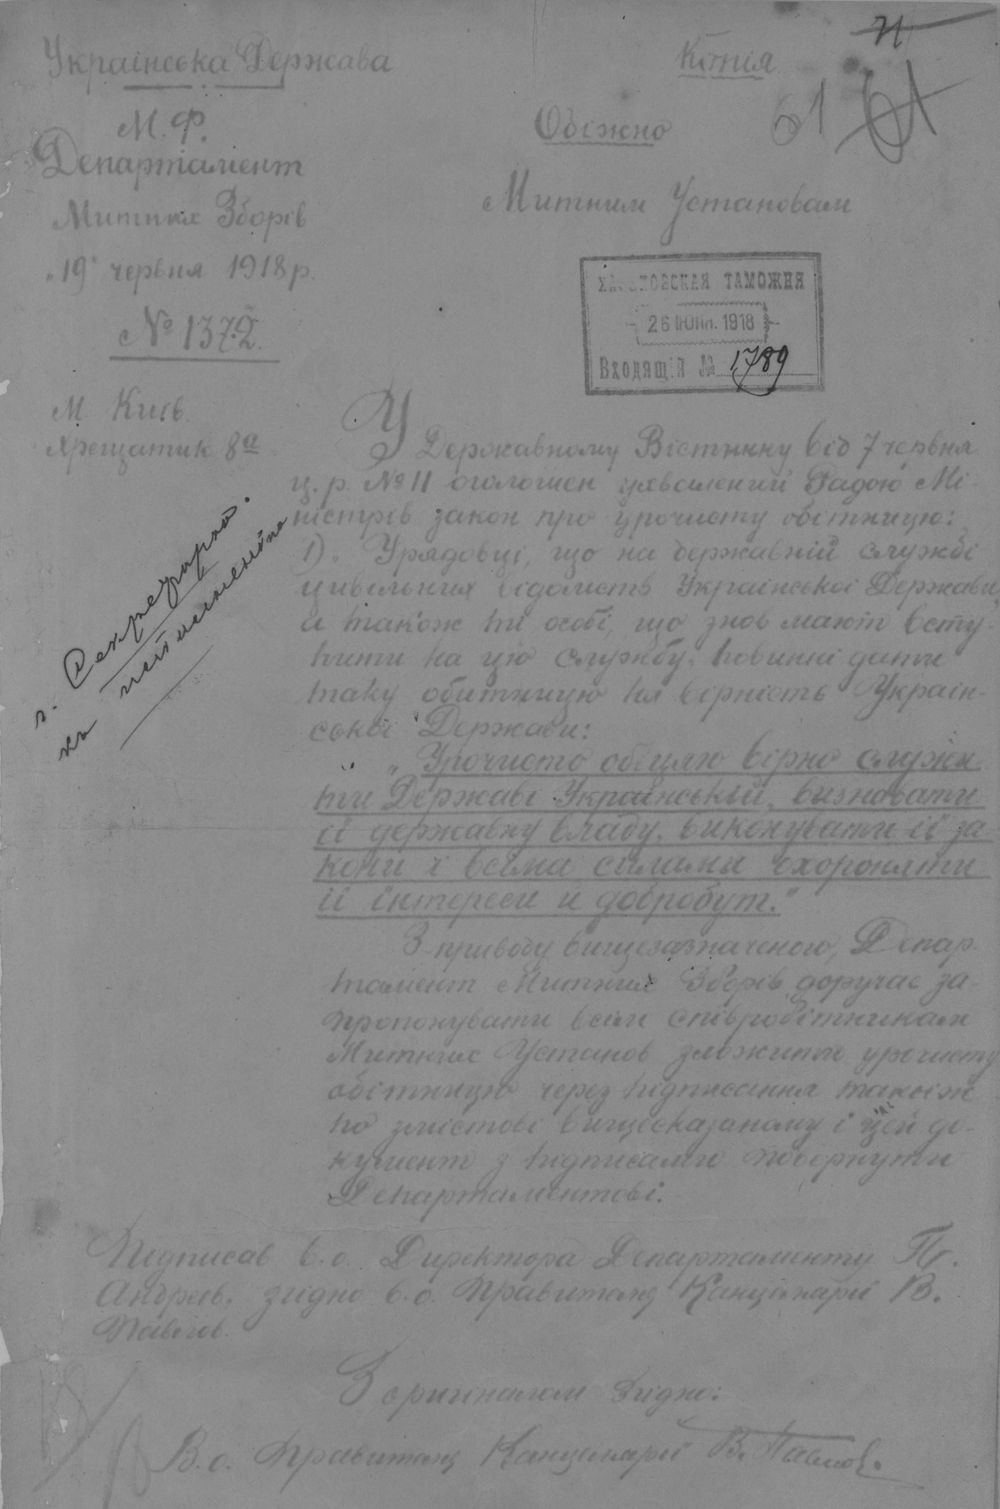 Українська Держава
М. Ф.
Департамент
Митних Зборів
„19" червня 1918 р.
№ 1372.
М. Київ.
Хрещатик 8а
Копія
71
61
Обіжно
Митним Установам
ТАМОЖНЯ
26 ІЮН. 1918
Входящій № 1789
г. Секретарю.
къ исполненію
У Державному Вістнику від 7 червня
ц. р. № 11 оголошен ухвалений Радою Мі-
ністрів закон про урочисту обітницю:
1). Урядовці, що на державній службі
цивільних відомств Української Держави,
а також ті особі, що знов мають всту-
пити на цю службу, повинні дати
таку обітницю на вірність Україн-
ські Держави:
„Урочисто обіцяю вірно служи-
ти Державі Українській, визнавати
її державну владу, виконувати її за-
кони і всіма силами охороняти
її інтереси й добробут."
З приводу вищезазначеного, Депар-
тамент Митних Зборів доручає за-
пропонувати всім співробітникам
Митних Установ зложити урочисту
обітницю через підписання такої ж
по змістові вищесказаному і цей до-
кумент з підписами повернути
Департаментові.
Підписав в. о. Директора Департаменту
згідно в. о. Правителя Канцелярії В.
Павлов.
З оригіналом згідно:
В. о. Правитель Канцелярії В. Павлов.